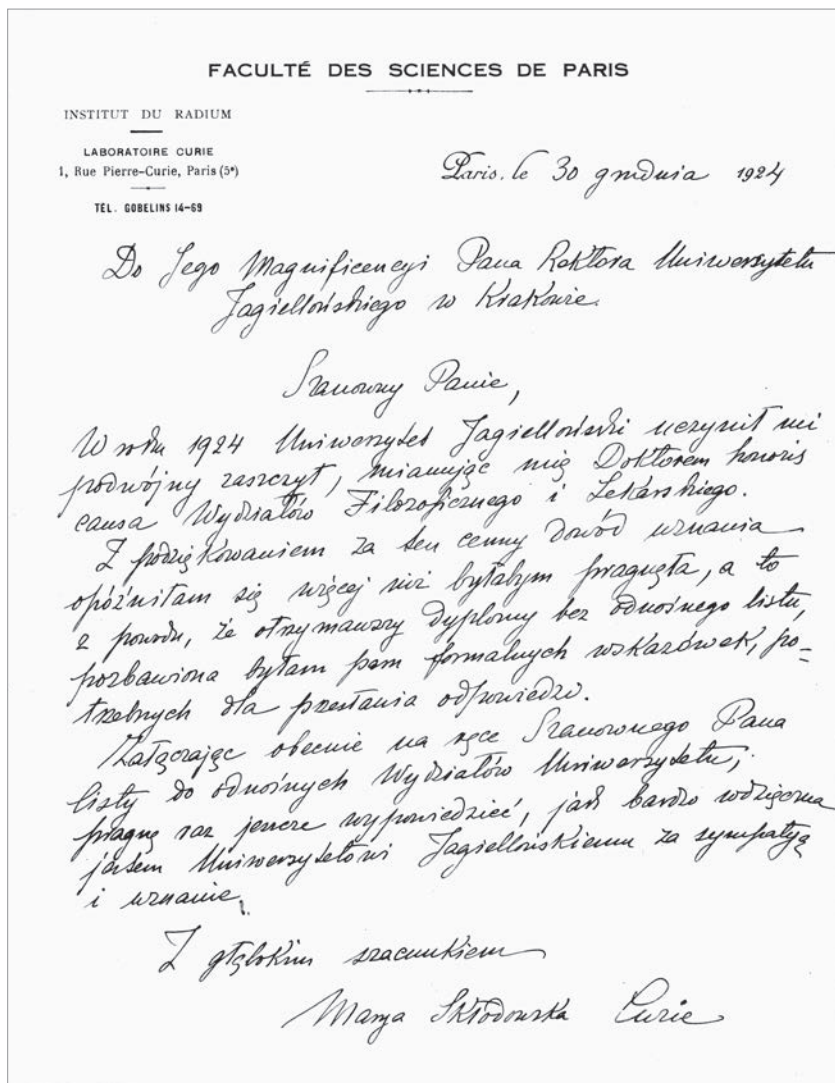 FACULTÉ DES SCIENCES DE PARIS
INSTITUT DU RADIUM
LABORATOIRE CURIE
1, Rue Pierre-Curie, Paris (5e)
TÉL. GOBELINS 14-69
Paris, le 30 grudnia 1924
Do Jego Magnificencyi Pana Rektora Uniwersytetu
Jagiellońskiego w Krakowie.
Szanowny Panie,
W roku 1924 Uniwersytet Jagielloński uczynił mi
podwójny zaszczyt, mianując mię Doktorem honoris
causa Wydziałów Filozoficznego i Lekarskiego.
Z podziękowaniem za ten cenny dowód uznania
opóźniłam się więcej niż byłabym pragnęła, a to
z powodu, że otrzymawszy dyplomy bez odnośnego listu,
pozbawiona byłam pam formalnych wskazówek, po-
trzebnych dla przesłania odpowiedzi.
Załączając obecnie na ręce Szanownego Pana
listy do odnośnych Wydziałów Uniwersytetu,
pragnę raz jeszcze wypowiedzieć, jak bardzo wdzięczna
jestem Uniwersytetowi Jagiellońskiemu za sympatyą
i uznanie.
Z głębokim szacunkiem
Marya Skłodowska Curie